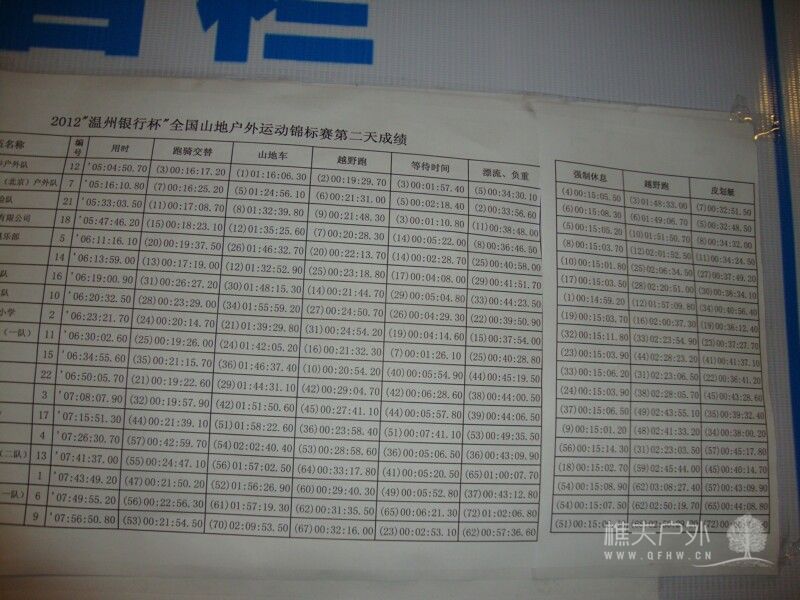 2012"温州银行杯"全国山地户外运动锦标赛第二天成绩
名称 编号 用时 跑骑交替 山地车 越野跑 等待时间 漂流、负重 强制休息 越野跑 皮划艇
户外队 12 '05:04:50.70 (3)00:16:17.20 (1)01:16:06.30 (2)00:19:29.70 (3)00:01:57.40 (5)00:34:30.10 (4)00:15:05.50 (3)01:48:33.00 (7)00:32:51.50
（北京）户外队 7 '05:16:10.80 (7)00:16:25.20 (5)01:24:56.10 (6)00:21:31.00 (5)00:02:18.40 (2)00:33:56.60 (6)00:15:08.30 (6)01:49:06.70 (5)00:32:48.50
队 21 '05:33:03.50 (11)00:17:08.70 (8)01:32:39.80 (9)00:21:48.30 (3)00:01:10.80 (11)00:38:48.00 (5)00:15:05.20 (10)01:51:50.70 (8)00:34:32.00
有限公司 18 '05:47:46.20 (15)00:18:23.10 (12)01:35:25.60 (7)00:20:28.30 (14)00:05:22.00 (8)00:36:46.50 (8)00:15:03.70 (12)01:02:52.50 (11)00:34:24.50
俱乐部 5 '06:11:16.10 (20)00:19:37.50 (26)01:46:32.70 (20)00:22:13.70 (14)00:02:28.70 (25)00:40:58.00 (10)00:15:01.80 (25)02:06:34.50 (27)00:37:49.20
14 '06:13:59.00 (13)00:17:19.00 (12)01:32:52.90 (25)00:23:18.80 (17)00:04:08.00 (29)00:41:51.70 (17)00:15:03.50 (28)02:20:51.00 (30)00:38:34.10
队 16 '06:19:00.90 (31)00:26:27.20 (30)01:48:15.30 (14)00:21:44.70 (29)00:05:04.80 (33)00:44:23.50 (1)00:14:59.20 (12)01:57:09.80 (34)00:40:56.40
队 10 '06:20:32.50 (28)00:23:29.00 (34)01:55:59.20 (27)00:24:50.70 (26)00:04:29.30 (22)00:39:50.90 (19)00:15:03.70 (16)02:00:37.30 (19)00:36:12.40
小学 2 '06:23:21.70 (24)00:20:14.70 (21)01:39:29.80 (31)00:24:54.20 (19)00:04:14.60 (15)00:37:54.00 (32)00:15:11.80 (33)02:23:54.90 (23)00:37:27.70
（一队） 11 '06:30:02.60 (25)00:19:26.00 (24)01:42:05.20 (16)00:21:32.30 (7)00:01:26.10 (25)00:40:28.80 (23)00:15:03.90 (44)02:28:23.20 (41)00:41:37.10
15 '06:34:55.60 (35)00:21:15.70 (36)01:46:37.40 (10)00:21:23.50 (40)00:05:54.90 (44)00:45:19.50 (33)00:15:06.20 (31)02:23:06.50 (22)00:36:41.20
22 '06:50:05.70 (21)00:19:22.60 (29)01:44:31.10 (42)00:29:04.70 (42)00:06:28.60 (38)00:44:00.50 (24)00:15:03.90 (38)02:28:02.50 (45)00:43:28.60
3 '07:08:07.90 (32)00:19:57.90 (42)01:51:50.60 (45)00:27:41.10 (44)00:05:57.80 (39)00:44:06.50 (37)00:15:06.50 (49)02:43:55.10 (35)00:39:32.40
17 '07:15:51.30 (44)00:21:39.10 (51)01:58:22.60 (36)00:23:58.40 (51)00:07:41.10 (53)00:49:35.50 (9)00:15:01.20 (48)02:41:33.20 (34)00:38:00.20
4 '07:26:30.70 (57)00:42:59.70 (54)02:02:40.40 (53)00:28:58.60 (36)00:05:06.50 (36)00:43:09.90 (56)00:15:14.30 (51)02:23:03.10 (57)00:45:17.80
（二队） 13 '07:41:37.00 (55)00:24:47.10 (56)01:57:02.50 (64)00:33:17.80 (41)00:05:20.50 (65)01:00:07.70 (18)00:15:02.70 (59)02:45:44.00 (45)00:40:14.70
1 '07:43:49.20 (47)00:21:50.20 (52)01:56:26.90 (60)00:29:40.30 (49)00:05:52.80 (37)00:43:12.80 (54)00:15:08.90 (62)03:08:27.40 (57)00:43:09.90
一队） 6 '07:49:55.20 (56)00:22:56.30 (61)01:57:19.30 (62)00:31:35.50 (65)00:06:21.30 (72)01:02:06.80 (54)00:15:07.50 (62)02:50:19.70 (65)00:44:08.80
9 '07:56:50.80 (53)00:21:54.50 (70)02:09:53.50 (67)00:32:16.00 (23)00:02:53.10 (62)00:57:36.60
樵夫户外
WWW.QFHW.CN